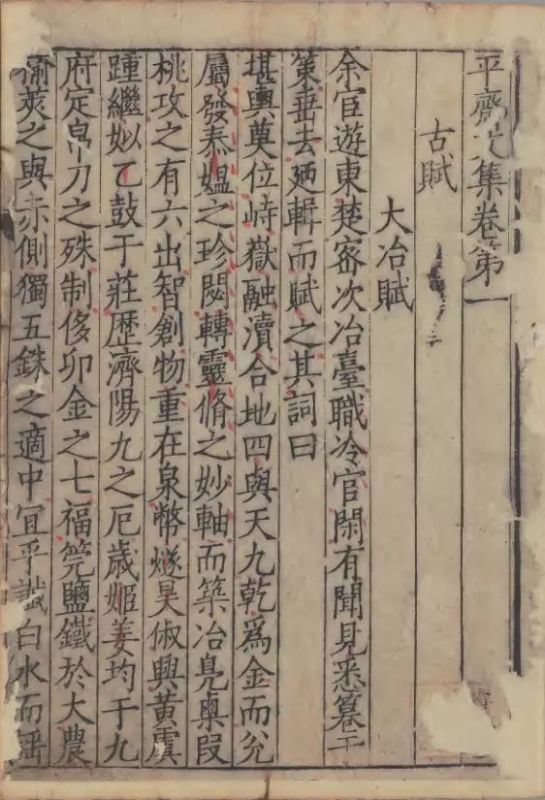 平齋文集卷第一
古賦
大冶賦
余宦遊東楚密次冶臺職冷官閑有聞見悉篹于
策垂去廼輯而賦之其詞曰
堪輿奠位峙嶽融瀆合地四與天九乾爲金而兊
屬發泰媪之珍閟轉靈脩之妙軸而築冶鳧㮣段
桃攻之有六出智創物重在泉幣燧昊俶興黄虞
踵繼姒乙鼓于莊歷濟陽九之厄歲姬姜均于九
府定帛刀之殊制侈卯金之七福筦鹽鐵於大農
榆莢之與赤側獨五銖之適中宜乎䜟白水而謡